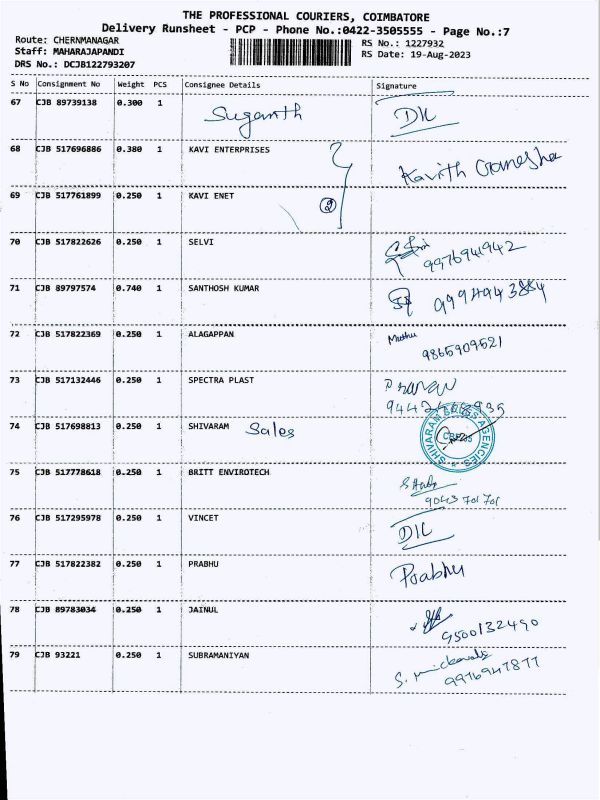 THE PROFESSIONAL COURIERS, COIMBATORE
Delivery Runsheet - PCP - Phone No.:0422-3505555 - Page No.:7
Route: CHERNMANAGAR
RS No.: 1227932
Staff: MAHARAJAPANDI
RS Date: 19-Aug-2023
DRS No.: DCJB122793207
S No Consignment No Weight PCS Consignee Details Signature
67 CJB 89739138 0.300 1 Suganth DIL
68 CJB 517696886 0.380 1 KAVI ENTERPRISES Kavith Ganesha
69 CJB 517761899 0.250 1 KAVI ENET 2
70 CJB 517822626 0.250 1 SELVI 9976941942
71 CJB 89797574 0.740 1 SANTHOSH KUMAR
72 CJB 517822369 0.250 1 ALAGAPPAN Muthu
9865909521
73 CJB 517132446 0.250 1 SPECTRA PLAST
74 CJB 517698813 0.250 1 SHIVARAM Sales SHIVARAM SALES AGENCIES
75 CJB 517778618 0.250 1 BRITT ENVIROTECH
9043 701701
76 CJB 517295978 0.250 1 VINCET DIL
77 CJB 517822382 0.250 1 PRABHU Prabhu
78 CJB 89783034 0.250 1 JAINUL
9500132490
79 CJB 93221 0.250 1 SUBRAMANIYAN
9976947877